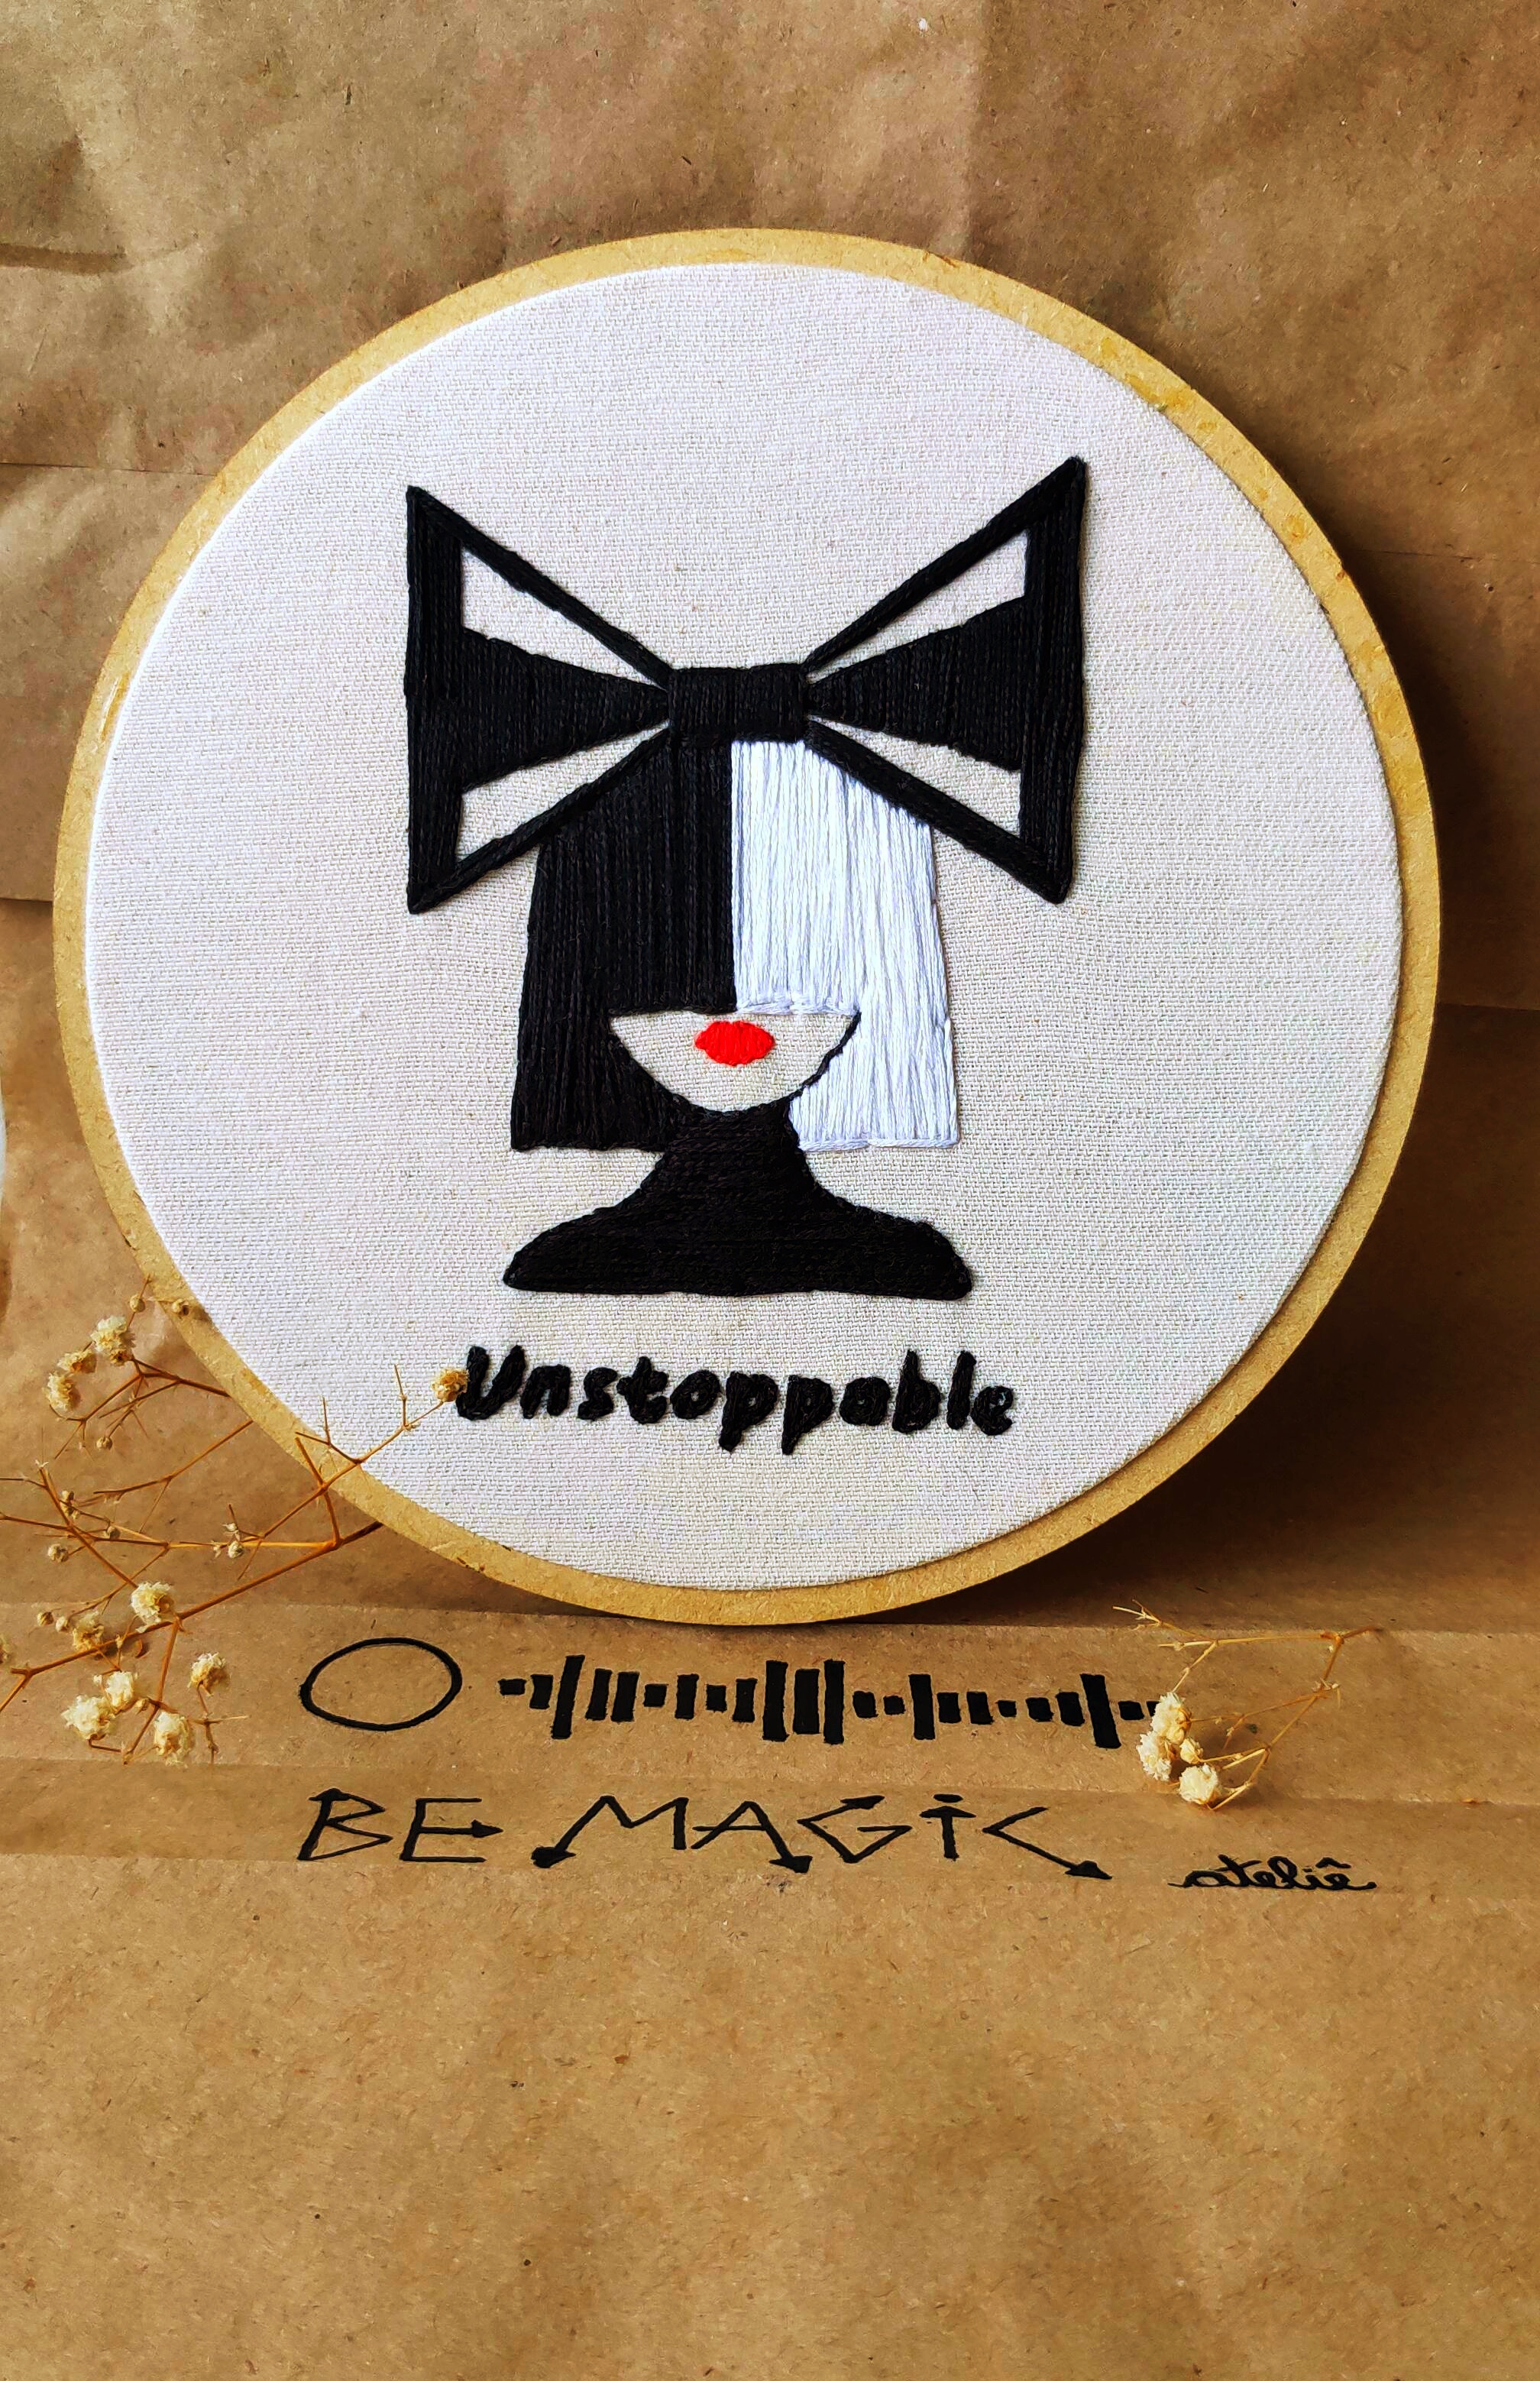 Unstoppable
BE MAGiC
ateliê